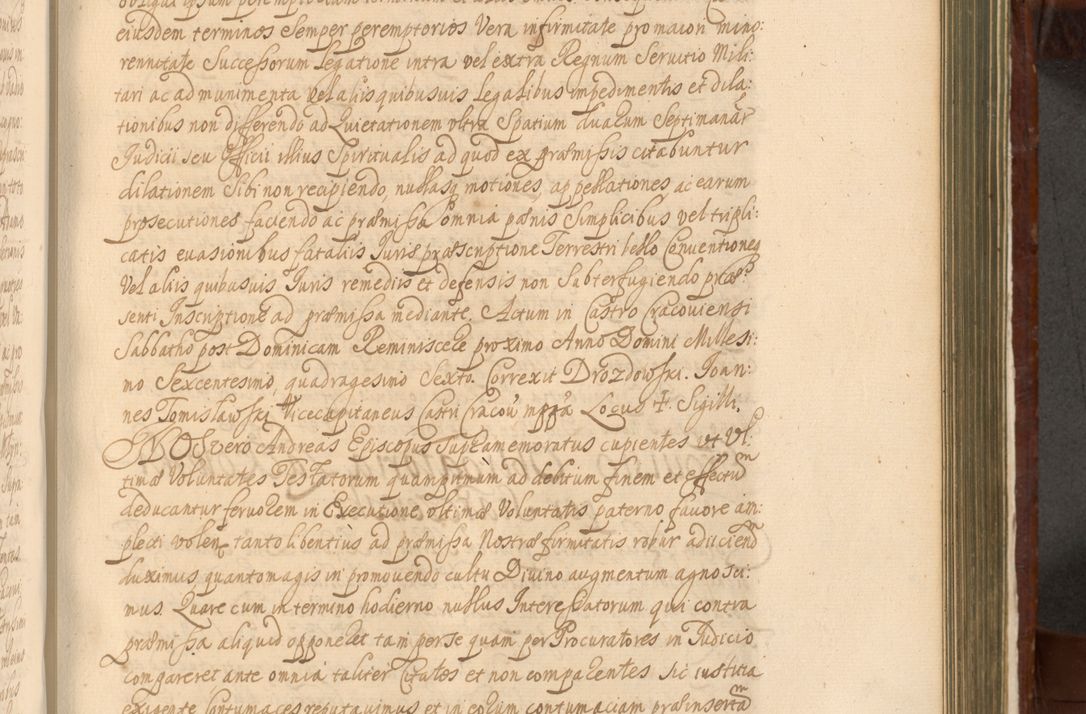 eiusdem terminos Semper peremptorios Vera infirmitate pro maiori mino:
rennitate Successorum legatione intra vel extra Regnum Servitio Mili:
tari ac ad munimenta vel aliis quibusvis legalibus impedimentis et dila:
tionibus non differendo ad Quietationem ultra Spatium duarum Septimanar
Judicii seu Officii illius Spiritualis ad quod ex præmissis citabuntur
dilationem Sibi non recipiendo, nullasq motiones, appellationes, ac earum
prosecutiones faciendo ac præmissa omnia pænis Simplicibus vel tripli:
catis evasionibus fataliis Juris præscriptione Terrestri bello Conventiones
Vel aliis quibusvis Juris remediis et defensis non Subterfugiendo præ:
senti Inscriptione ad præmissa mediante. Actum in Castro Cracoviensi
Sabbatho post Dominicam Reminiscere proximo Anno Domini Millesi:
mo Sexcentesimo, quadragesimo Sexto. Correxit Drozdowski. Joan:
nes Tomislawski Vicecapitaneus Castri Cracou mppa Locus ‡ Sigilli.
NOS vero Andreas Episcopus Supramemoratus cupientes ut Ul:
timæ Voluntates Testatorum quamprimum ad debitum finem et effectum
deducantur fervorem in Executione ultimæ Voluntatis paterno favore am:
plecti volen tanto libentius ad præmissa Nostræ firmitatis robur adiiciend
duximus quanto magis in promovendo cultu Divino augmentum agnosci:
mus. Quare cum in termino hodierno nullus Interessatorum qui contra
præmissa aliquid opponeret tam per se quam per Procuratores in Judicio
compareret ante omnia taliter Citatos et non comparentes sic iustitia
exigente Contumaces reputavimus et in eorum contumaciam præinserta